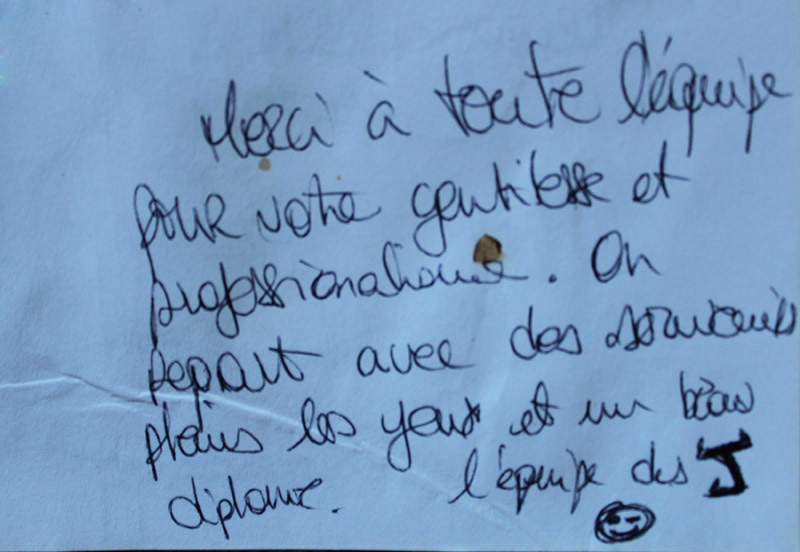 Merci à toute l'équipe
pour votre gentillesse et
professionalisme. On
repart avec des souvenirs
pleins les yeux et un beau
diplome. l'équipe des J